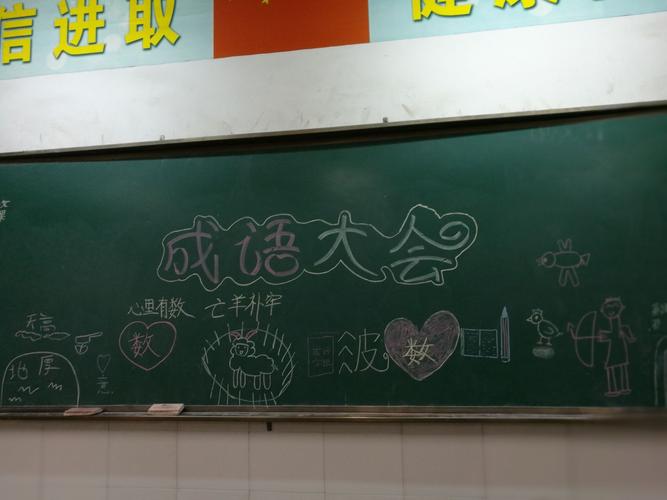 信进取
健康
成语大会
心里有数
亡羊补牢
天高
地厚
意
数
波
数